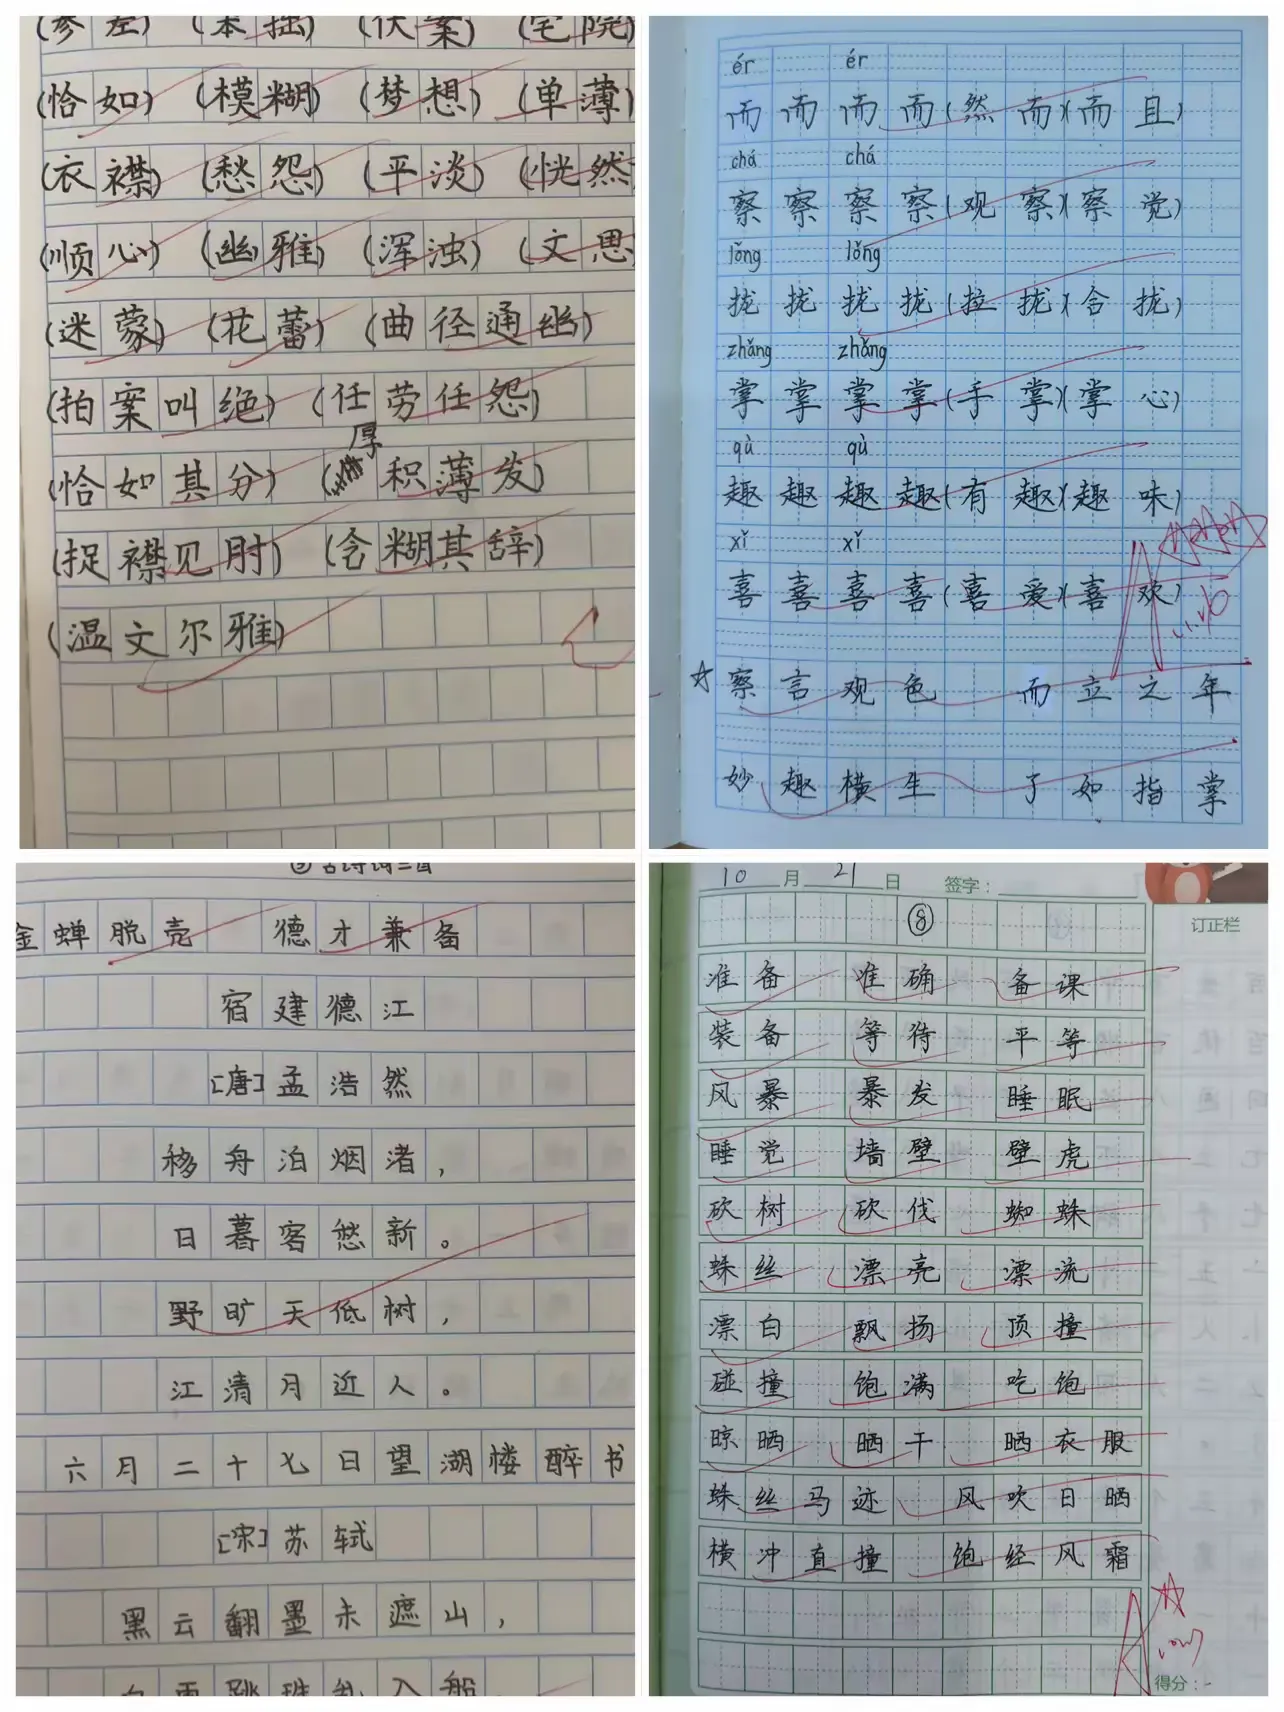 (参差) (笨拙) (伏案) (宅院)
(恰如) (模糊) (梦想) (单薄)
(衣襟) (愁怨) (平淡) (恍然
(顺心) (幽雅) (浑浊) (文思
(迷蒙) (花蕾) (曲径通幽)
(拍案叫绝) (任劳任怨)
(恰如其分) (厚积薄发)
(捉襟见肘) (含糊其辞)
(温文尔雅)
ér ér
而 而 而 而 (然 而)(而 且)
chá chá
察 察 察 察 (观 察)(察 觉)
lǒng lǒng
拢 拢 拢 拢 (拉 拢)(合 拢)
zhǎng zhǎng
掌 掌 掌 掌 (手 掌)(掌 心)
qù qù
趣 趣 趣 趣 (有 趣)(趣 味)
xǐ xǐ
喜 喜 喜 喜 (喜 爱)(喜 欢)
☆ 察言观色 而立之年
妙趣横生 了如指掌
③ 古诗词三首
金蝉脱壳 德才兼备
宿建德江
[唐]孟浩然
移舟泊烟渚，
日暮客愁新。
野旷天低树，
江清月近人。
六月二十七日望湖楼醉书
[宋]苏轼
黑云翻墨未遮山，
白雨跳珠乱入船
10月21日 签字：
⑧
订正栏
准备 准确 备课
装备 等待 平等
风暴 暴发 睡眠
睡觉 墙壁 壁虎
砍树 砍伐 蜘蛛
蛛丝 漂亮 漂流
漂白 飘扬 顶撞
碰撞 饱满 吃饱
晾晒 晒干 晒衣服
蛛丝马迹 风吹日晒
横冲直撞 饱经风霜
得分：